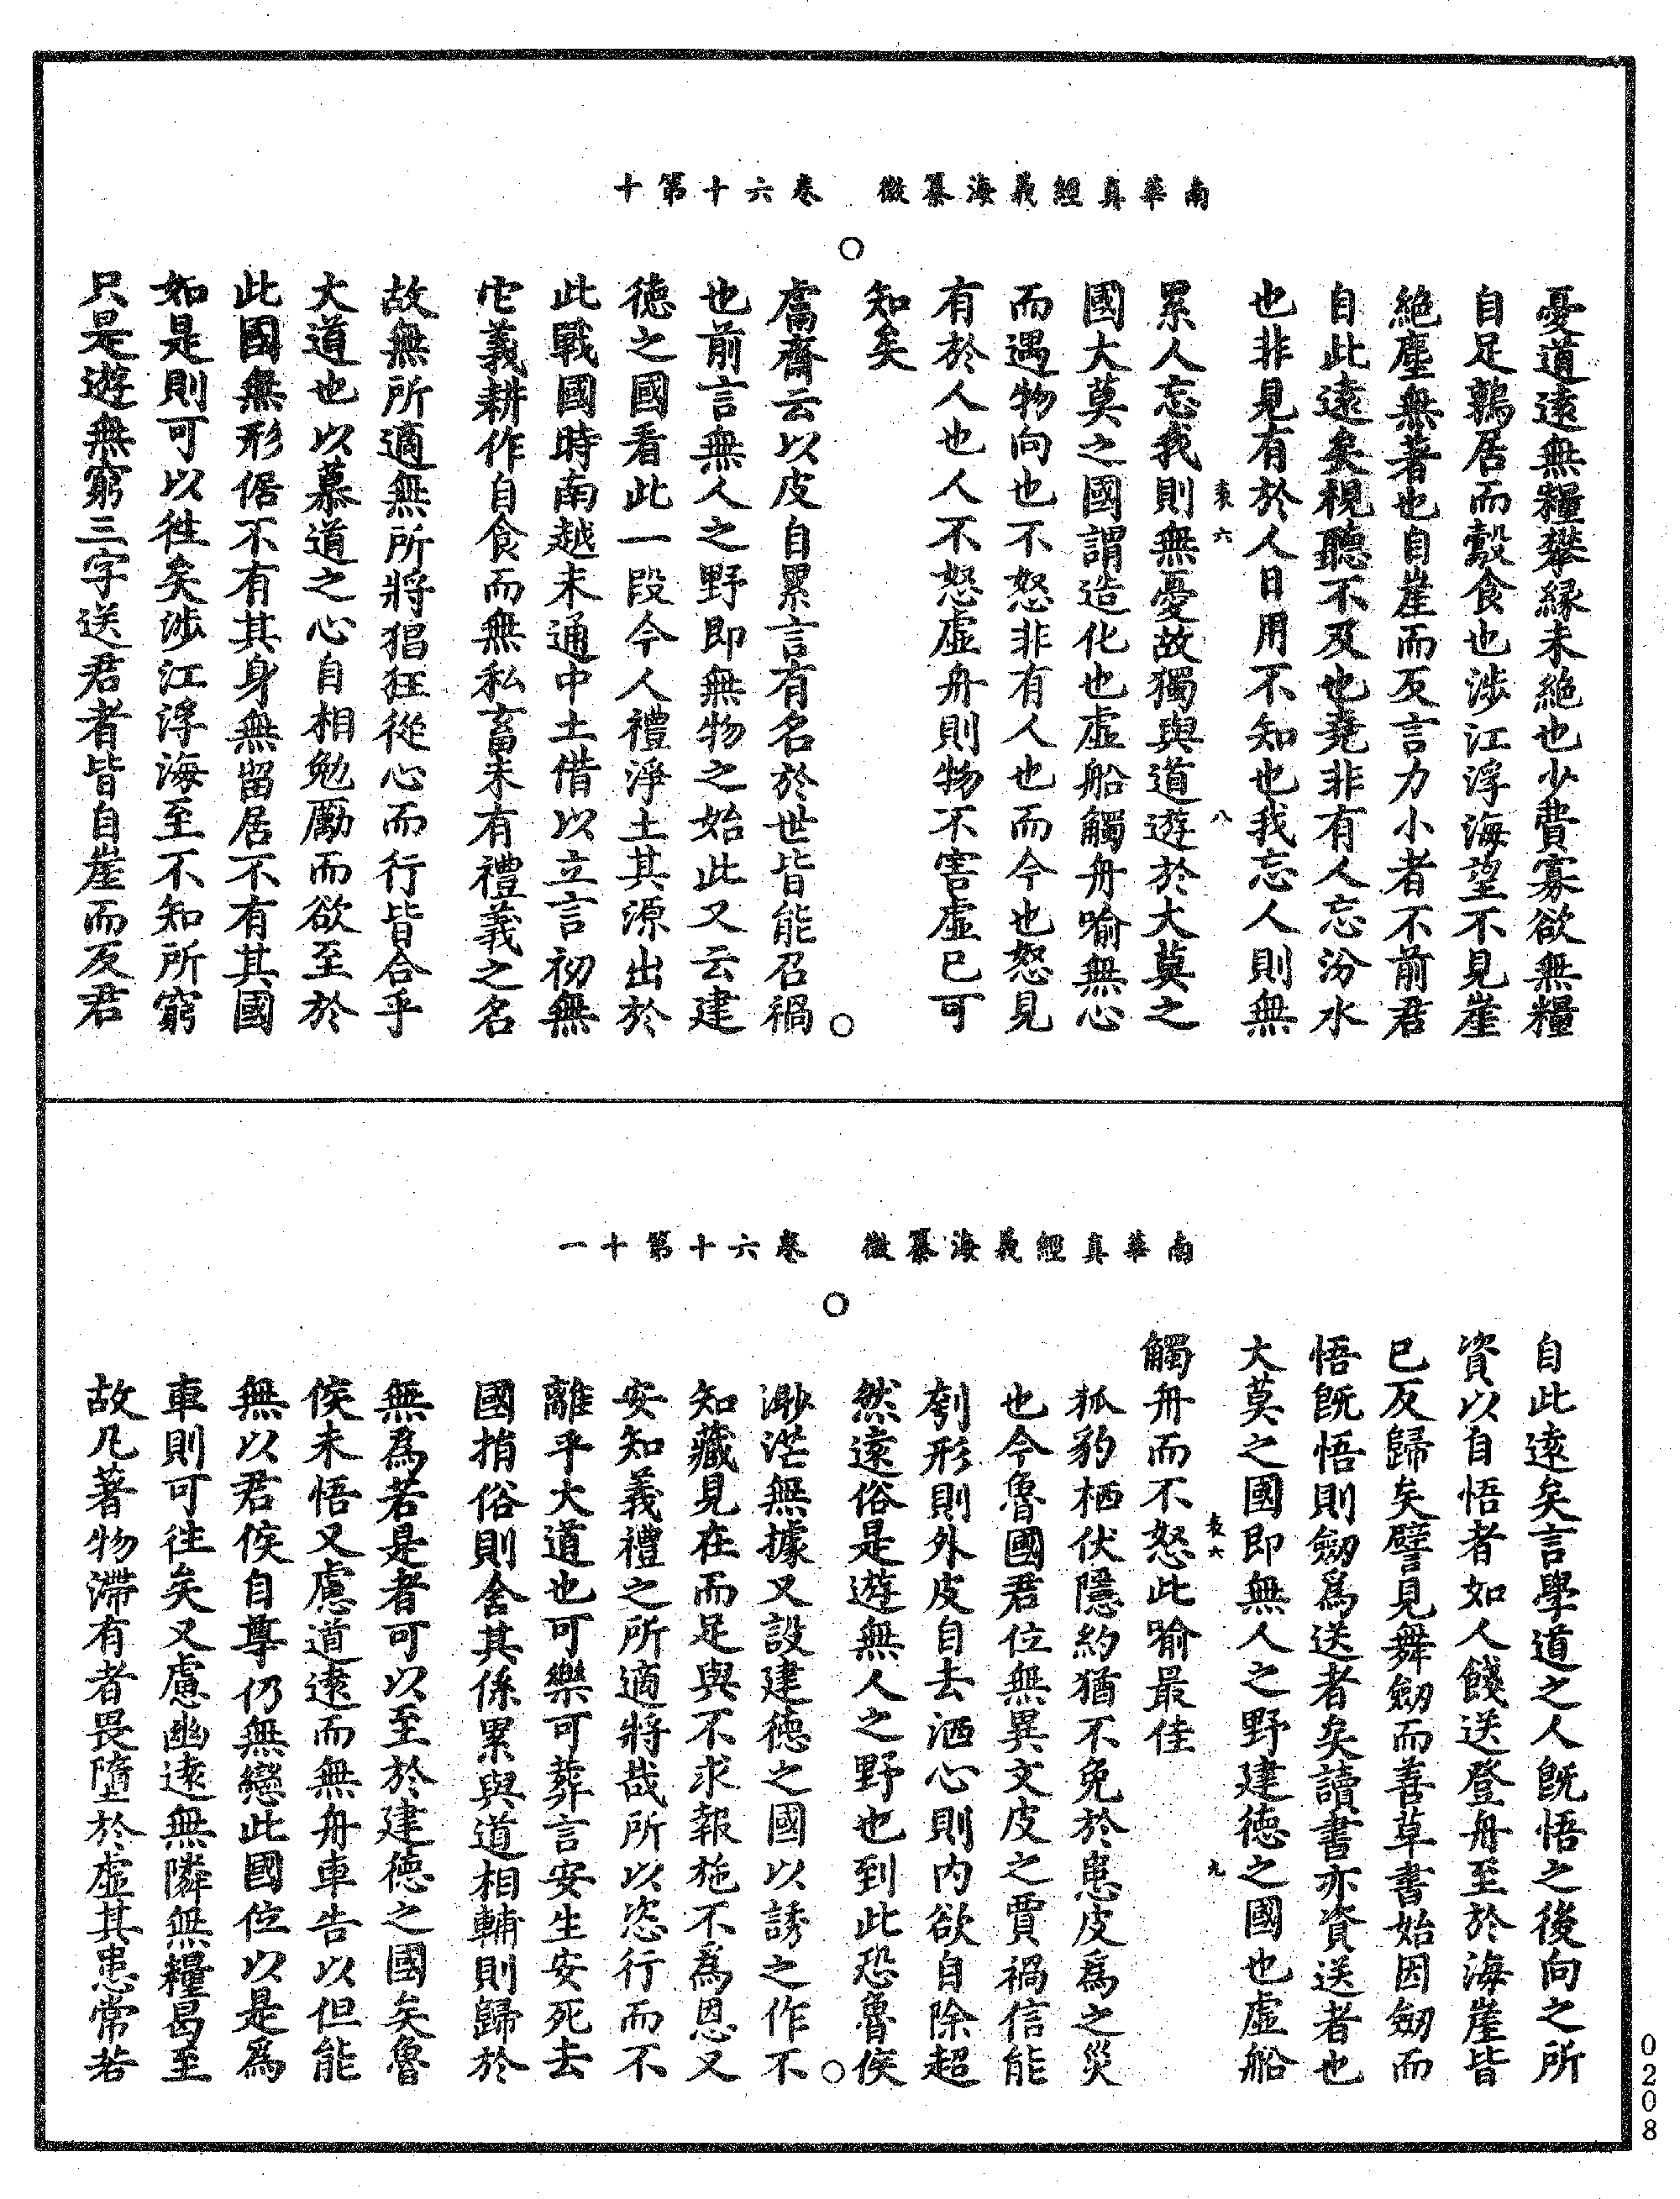 南華真經義海纂微　卷六十第十
憂道遠無糧攀緣未絕也少費寡欲無糧
自足鶉居而鷇食也涉江浮海望不見崖
絕塵無著也自崖而反言力小者不前君
自此遠矣視聽不及也堯非有人忘汾水
也非見有於人日用不知也我忘人則無
累人忘我則無憂故獨與道遊於大莫之
國大莫之國謂造化也虛船觸舟喻無心
而遇物向也不怒非有人也而今也怒見
有於人也人不怒虛舟則物不害虛已可
知矣
鬳齋云以皮自累言有名於世皆能召禍
也前言無人之野即無物之始此又云建
德之國看此一段今人禮淨土其源出於
此戰國時南越未通中土借以立言初無
它義耕作自食而無私畜未有禮義之名
故無所適無所將猖狂從心而行皆合乎
大道也以慕道之心自相勉勵而欲至於
此國無形倨不有其身無留居不有其國
如是則可以徃矣涉江浮海至不知所窮
只是遊無窮三字送君者皆自崖而反君
南華真經義海纂微　卷六十第十一
自此遠矣言學道之人既悟之後向之所
資以自悟者如人餞送登舟至於海崖皆
已反歸矣譬見舞劒而善草書始因劒而
悟既悟則劒為送者矣讀書亦資送者也
大莫之國即無人之野建德之國也虛船
觸舟而不怒此喻最佳
狐豹栖伏隱約猶不免於患皮為之災
也今魯國君位無異文皮之賈禍信能
刳形則外皮自去洒心則內欲自除超
然遠俗是遊無人之野也到此恐魯侯
渺茫無據又設建德之國以誘之作不
知藏見在而足與不求報施不為恩又
安知義禮之所適將哉所以恣行而不
離乎大道也可樂可葬言安生安死去
國捐俗則舍其係累與道相輔則歸於
無為若是者可以至於建德之國矣魯
侯未悟又慮道遠而無舟車告以但能
無以君侯自尊仍無戀此國位以是為
車則可往矣又慮幽遠無隣無糧曷至
故凡著物滯有者畏墮於虛其患常若
表六　八
表六　九
0208